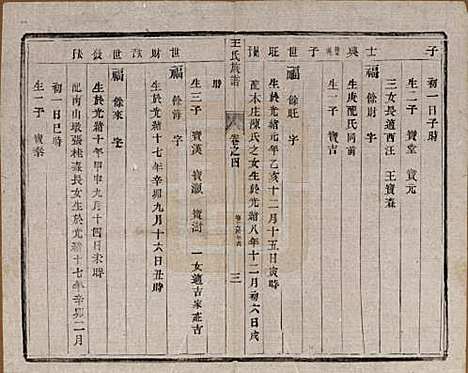 子 初一日子時
生二子 寶堂 寶元
三女長適西汪 王寶森
士興 生庚配氏同前
福 餘財 字
子
世 福 餘旺 字
生於光緒元年乙亥十二月十五日寅時
配木庄陳氏之女生於光緒八年十二月初六日戌
王氏族譜 卷之四 三
時
生三子 寶漢 寶瀛 寶澍 一女適吉家莊吉
世財 福 餘海 字
生於光緒十七年辛卯九月十六日丑時
世發 福 餘來 字
生於光緒十年甲申九月十四日未時
配南山墩張桂森長女生於光緒十七年辛卯二月
初一日巳時
生一子 寶榮